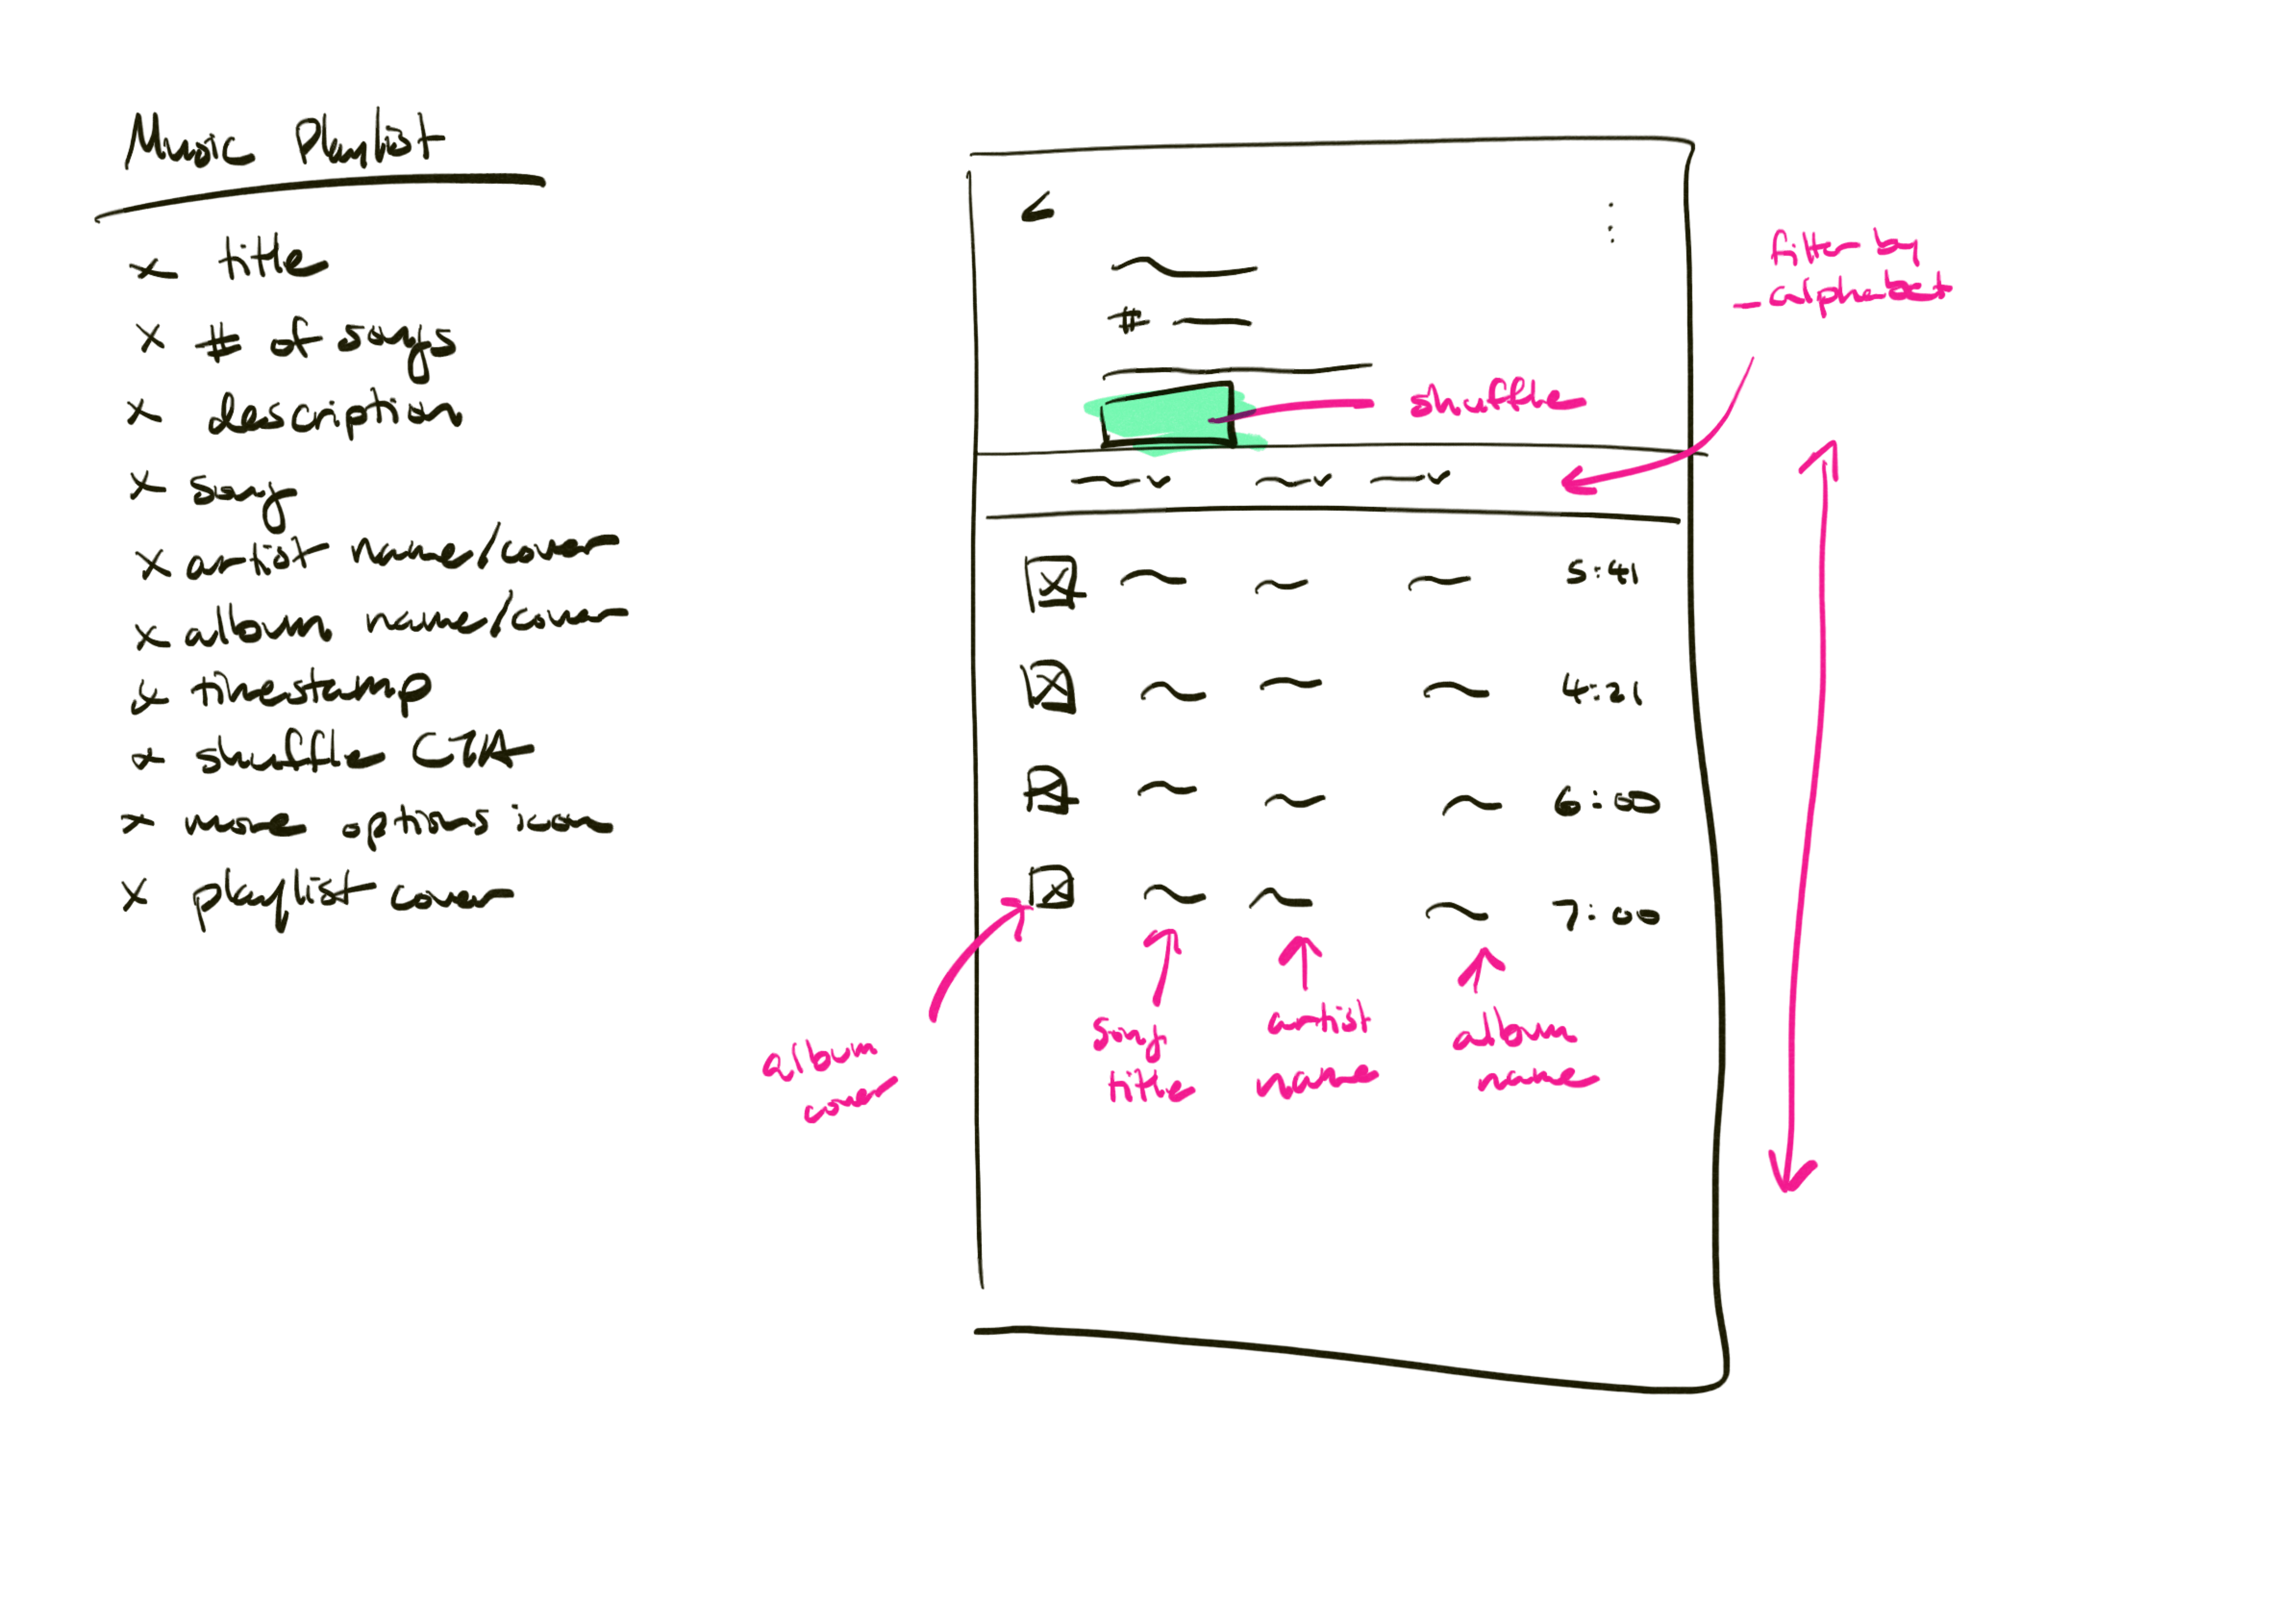 Music Playlist
x title
x # of songs
x description
x song
x artist name/cover
x album name/cover
x timestamp
x shuffle CTA
x more options icon
x playlist cover
<
#
shuffle
filter by
- alphabet
5:41
4:21
6:00
7:00
album
cover
song
title
artist
name
album
name